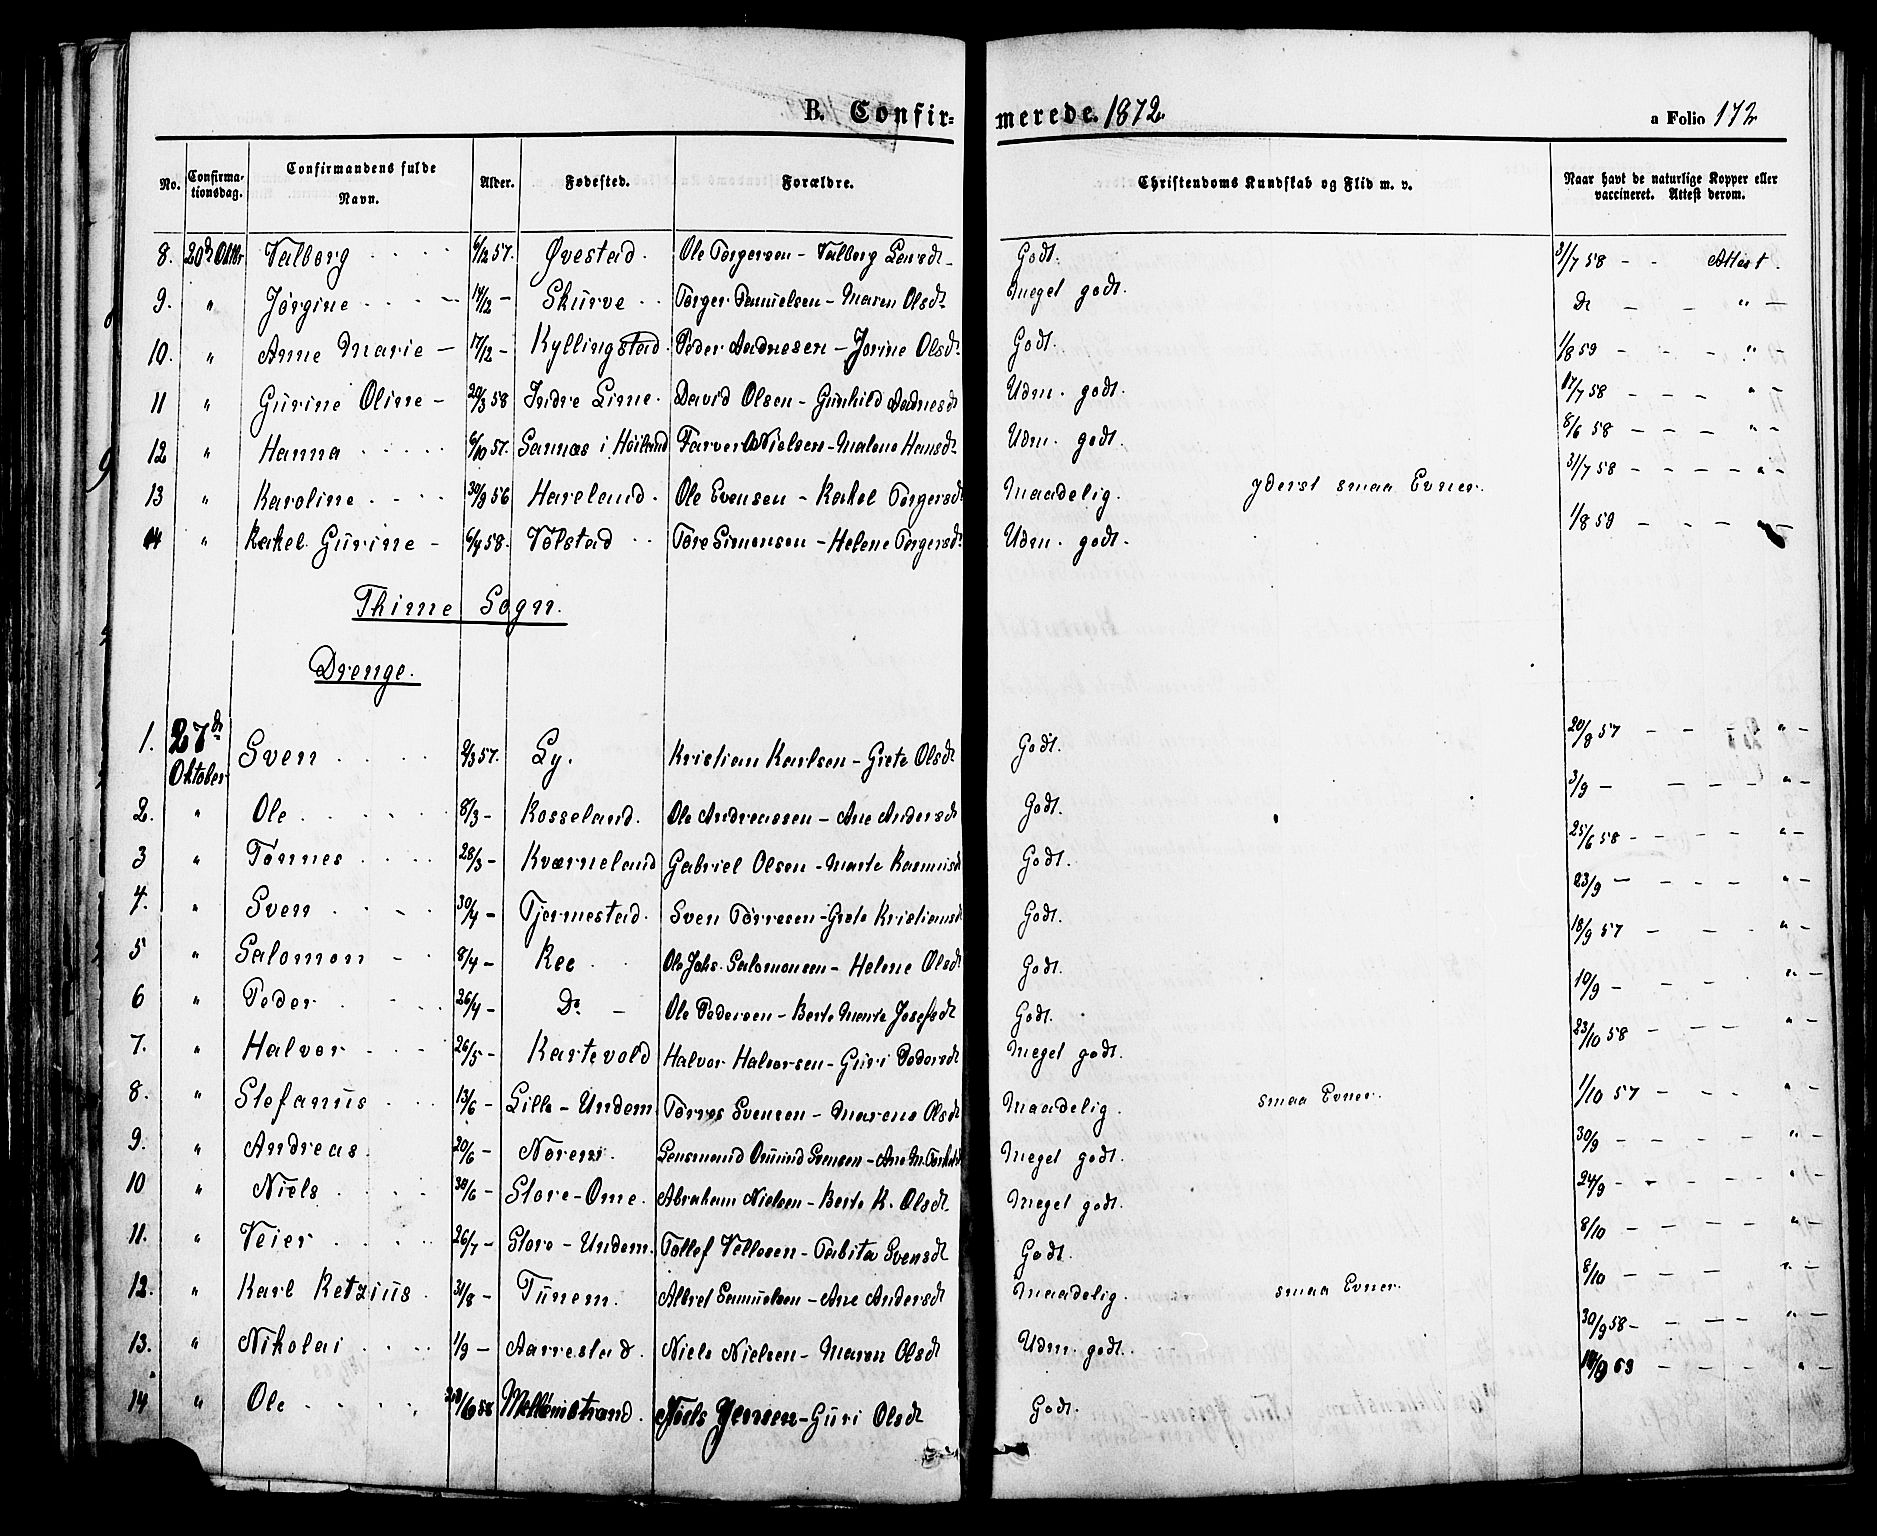 B. Confir= merede. 1872. a Folio 172
No. Confirma-tionsdag. Confirmandens fulde Navn. Alder. Fødested. Forældre. Christendoms Kundskab og Flid m. v. Naar havt de naturlige Kopper eller vaccineret. Attest derom.
8. 20de Oktbr Valborg 6/12 57. Øvestad. Ole Torgersen - Valborg Lensdt Godt. 31/7 58 - - Attest.
9. " Jørgine 14/12 - Skurve Torger Samuelsen - Maren Olsdt Meget godt. Do - - " -
10. " Anne Marie - 17/12 - Kyllingstad. Peder Aadnesen - Jorine Olsdt Godt. 1/8 59 - - - " -
11 " Gurine Oline - 20/3 58 Indre Lime. David Olsen - Gunhild Aadnesdt Udm. godt. 17/7 58 - - - " -
12 " Hanna 6/10 57. Sannæs i Høiland Farver O Nielsen - Malene Hansdt Udm. godt. 8/6 58 - - - " -
13 " Karoline 30/9 56 Hareland. Ole Evensen - Rakel Torgersdt Maadelig. yderst smaa Evner. 31/7 58 - - - " -
14 " Rakel Gurine - 6/4 58. Vølstad Tore Simonsen - Helene Torgersdt Udm. godt. 1/8 59 - - - -
Thime Sogn.
Drenge.
1. 27de Oktober Sven 2/3 57. Ly. Kristian Karlsen - Grete Olsdt Godt. 20/8 57 - - - " -
2. " Ole 8/3 - Kosseland. Ole Andreassen - Ane Andersdt Godt. 3/9 - - - - " -
3 " Tønnes 28/3 - Kværneland Gabriel Olsen - Marte Rasmusdt Godt. 25/6 58 - - - - " -
4. " Sven 30/4 - Tjermestad. Sven Torresen - Grete Kristiansdt Godt. 23/9 - - - - " -
5 " Salomon 8/4 - Ree Ole Johs. Salomonsen - Helene Olsdt Godt. 18/9 57 - - " -
6 " Peder 26/4 - Do - Ole Pedersen - Berte Marte Josefsdt Godt. 10/9 - - - " -
7. " Halvor 26/5 - Kartevold Halvor Halvorsen - Guri Pedersdt Meget godt. 23/10 58 - - - " -
8. " Stefanus 13/6 - Lille - Undem. Torres Svensen - Marene Olsdt Maadelig. smaa Evner. 1/10 57 - - - " -
9. " Andreas. 20/6 - Norem. Lensmand Omund Svensen - Ane M. Meget godt. 30/9 - - - - " -
10 " Niels 30/6 - Store - Ome. Abraham Nielsen - Berte K. Olsdt Meget godt. 24/9 - - - - " -
11. " Veier 26/7 - Store - Undem. Tollef Vellesen - Tabita Svensdt Godt. 8/10 - - - - " -
12. " Karl Retzius 31/8 - Tunem. Albret Samuelsen - Ane Andersdt Maadelig. smaa Evner. 8/10 - - - - " -
13. " Nikolai 1/9 - Aarrestad. Niels Nielsen - Maren Olsdt Udm. godt. 30/9 58 - - - - " -
14 " Ole 58 Mellemstrand. Niels Jensen - Guri Olsdt Godt. 63 - - - - " -